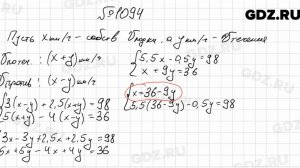 № 1094
GDZ.RU
Пусть x км/ч - собств
а y км/ч - течения
По теч: (x+y) км/ч
против: (x-y) км/ч
{ 5,5x - 0,5y = 98
x + 9y = 36
{ x = 36 - 9y
5,5(36-9y) - 0,5y = 98
{ 3(x-y) + 2,5(x+y) = 98
5(x+y) - 4(x-y) = 36
3x - 3y + 2,5x + 2,5y = 98
5x + 5y - 4x + 4y = 36
GDZ.RU